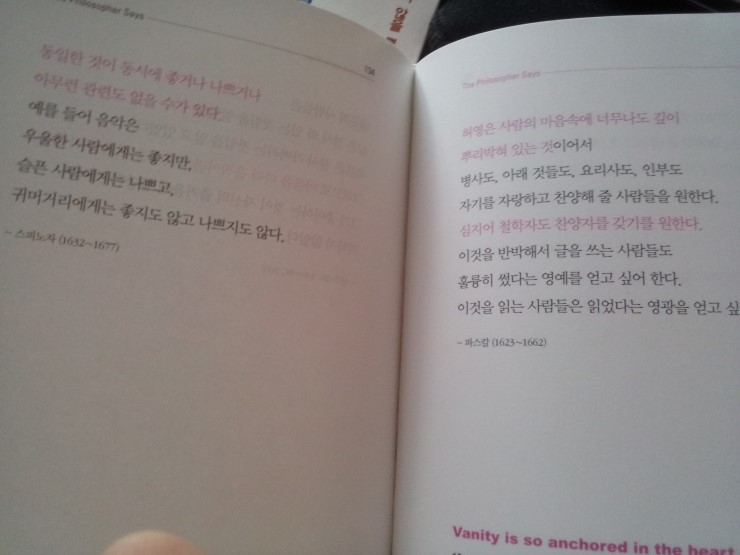 The Philosopher Says
134
동일한 것이 동시에 좋거나 나쁘거나
아무런 관련도 없을 수가 있다.
예를 들어 음악은
우울한 사람에게는 좋지만,
슬픈 사람에게는 나쁘고,
귀머거리에게는 좋지도 않고 나쁘지도 않다.
~ 스피노자 (1632~1677)
The Philosopher Says
허영은 사람의 마음속에 너무나도 깊이
뿌리박혀 있는 것이어서
병사도, 아래 것들도, 요리사도, 인부도
자기를 자랑하고 찬양해 줄 사람들을 원한다.
심지어 철학자도 찬양자를 갖기를 원한다.
이것을 반박해서 글을 쓰는 사람들도
훌륭히 썼다는 영예를 얻고 싶어 한다.
이것을 읽는 사람들은 읽었다는 영광을 얻고 싶
~ 파스칼 (1623~1662)
Vanity is so anchored in the heart